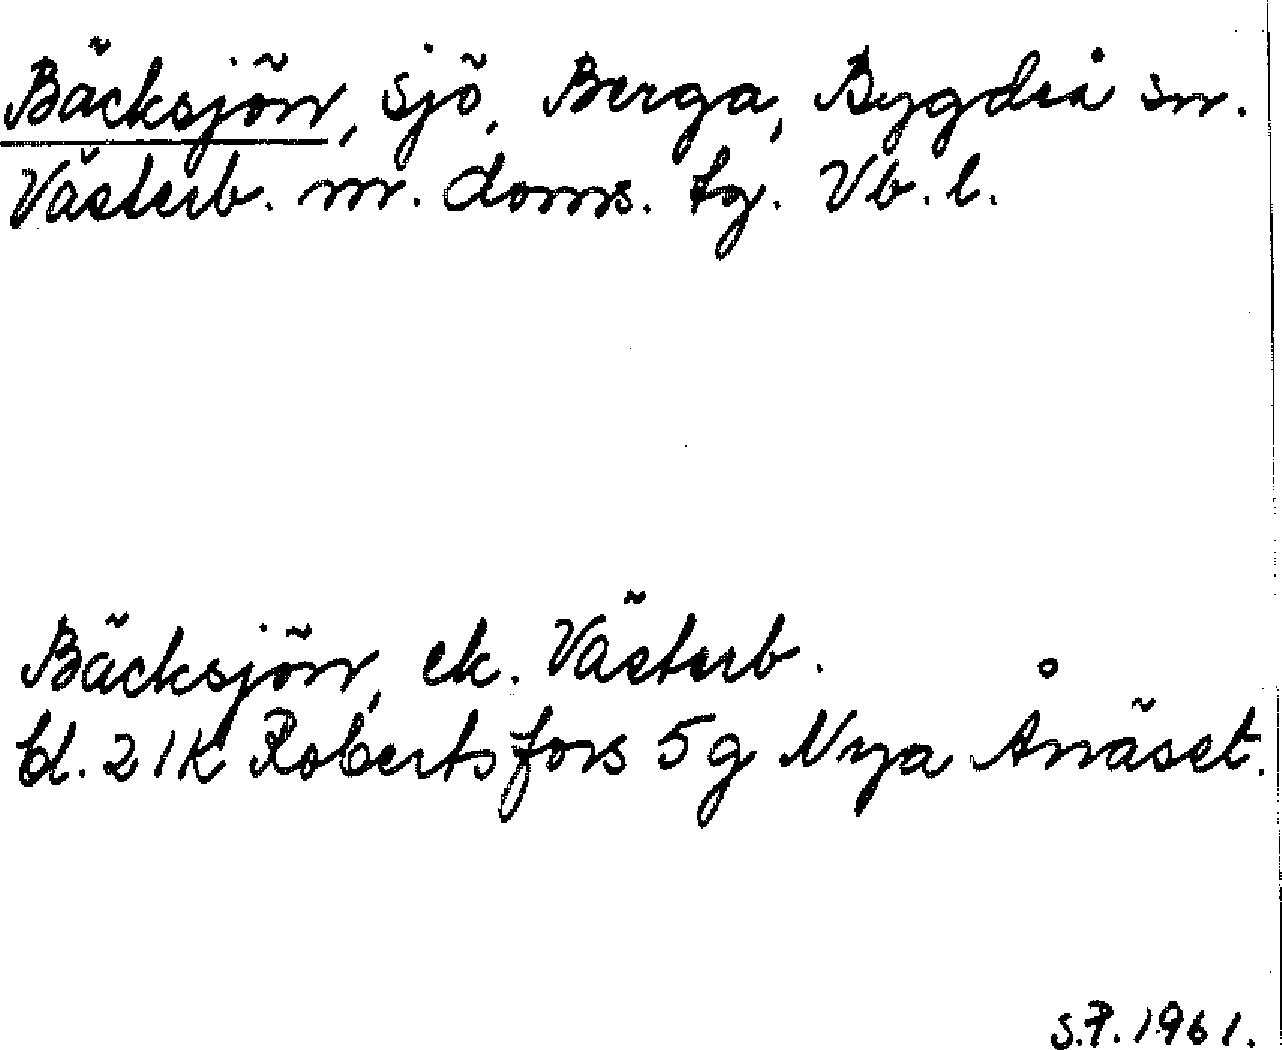 Bäcksjön, sjö, Berga, Bygdeå sn.
Västerb. n. doms. tg. Vb. l.
Bäcksjön, ek. Västerb.
bl. 21K Robertsfors 5g Nya Ånäset.
S.P. 1961.